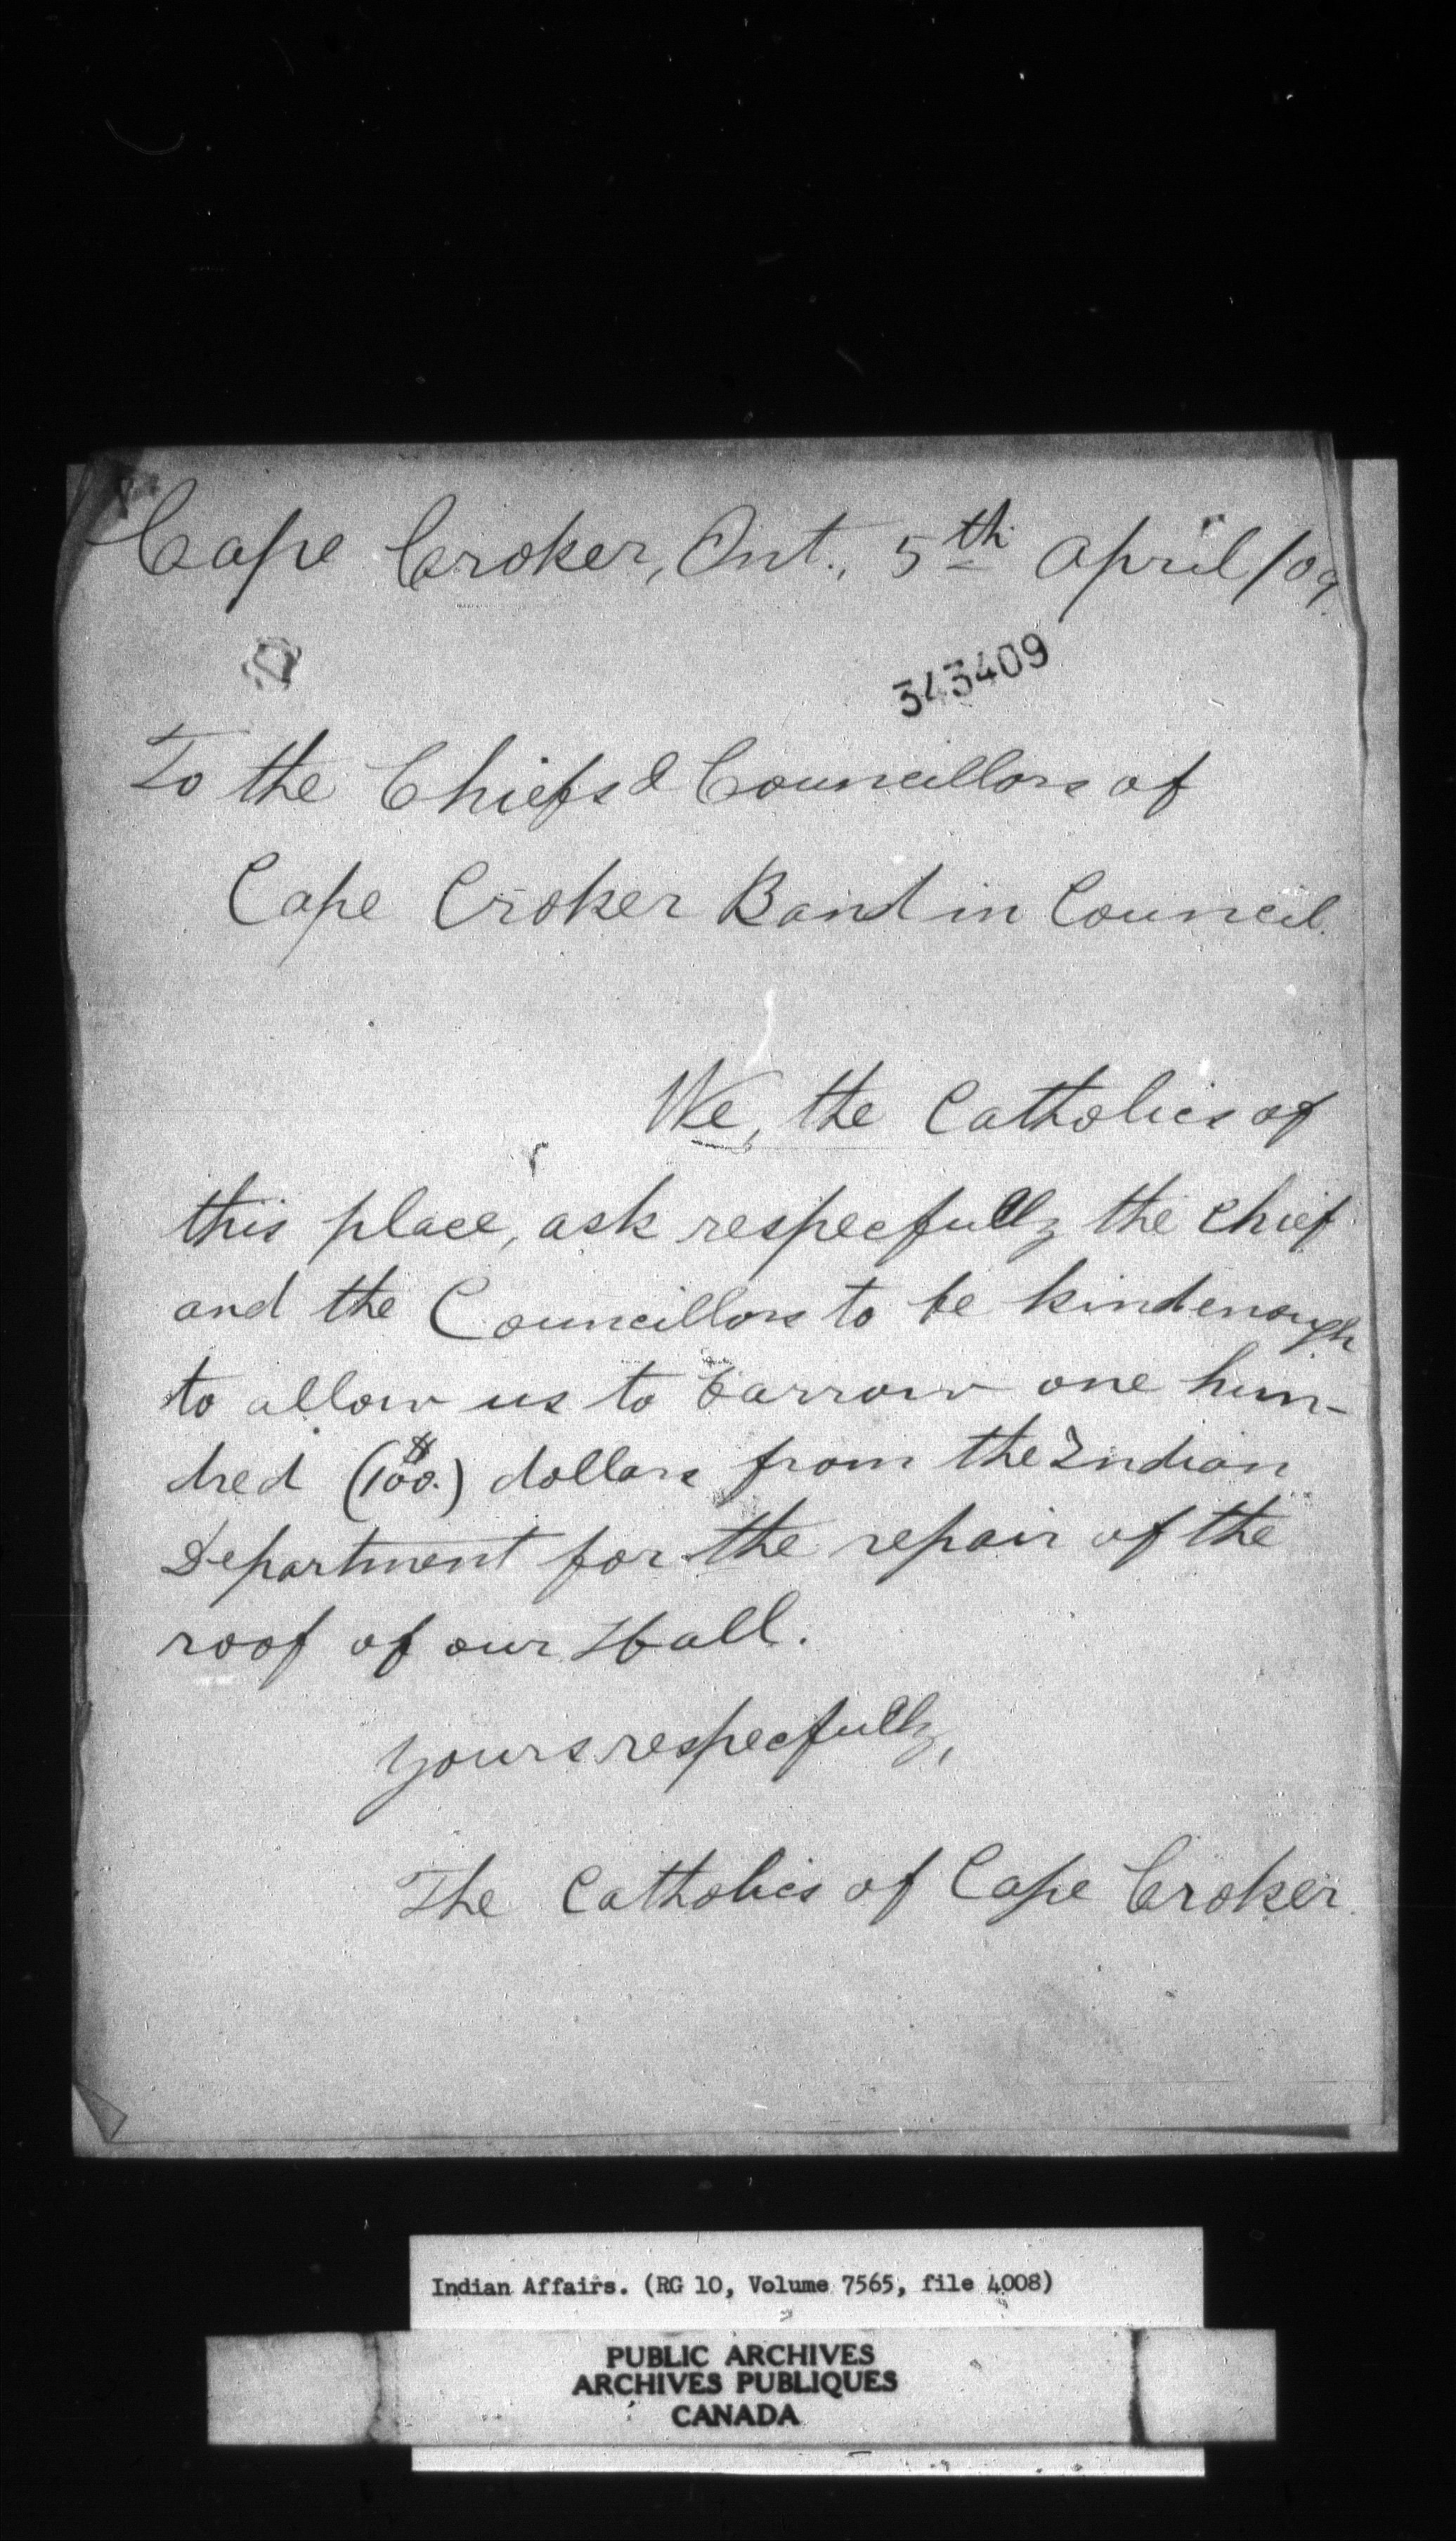 Cape Croker, Ont., 5th April/09.
343409
To the Chiefs & Councillors of
Cape Croker Band in Council.
We, the Catholics of
this place, ask respecfully the chief
and the Councillors to be kind enough
to allow us to barrow one hun-
dred ($100.) dollars from the Indian
Department for the repair of the
roof of our Hall.
Yours respecfully,
The Catholics of Cape Croker.
Indian Affairs. (RG 10, Volume 7565, file 4008)
PUBLIC ARCHIVES
ARCHIVES PUBLIQUES
CANADA